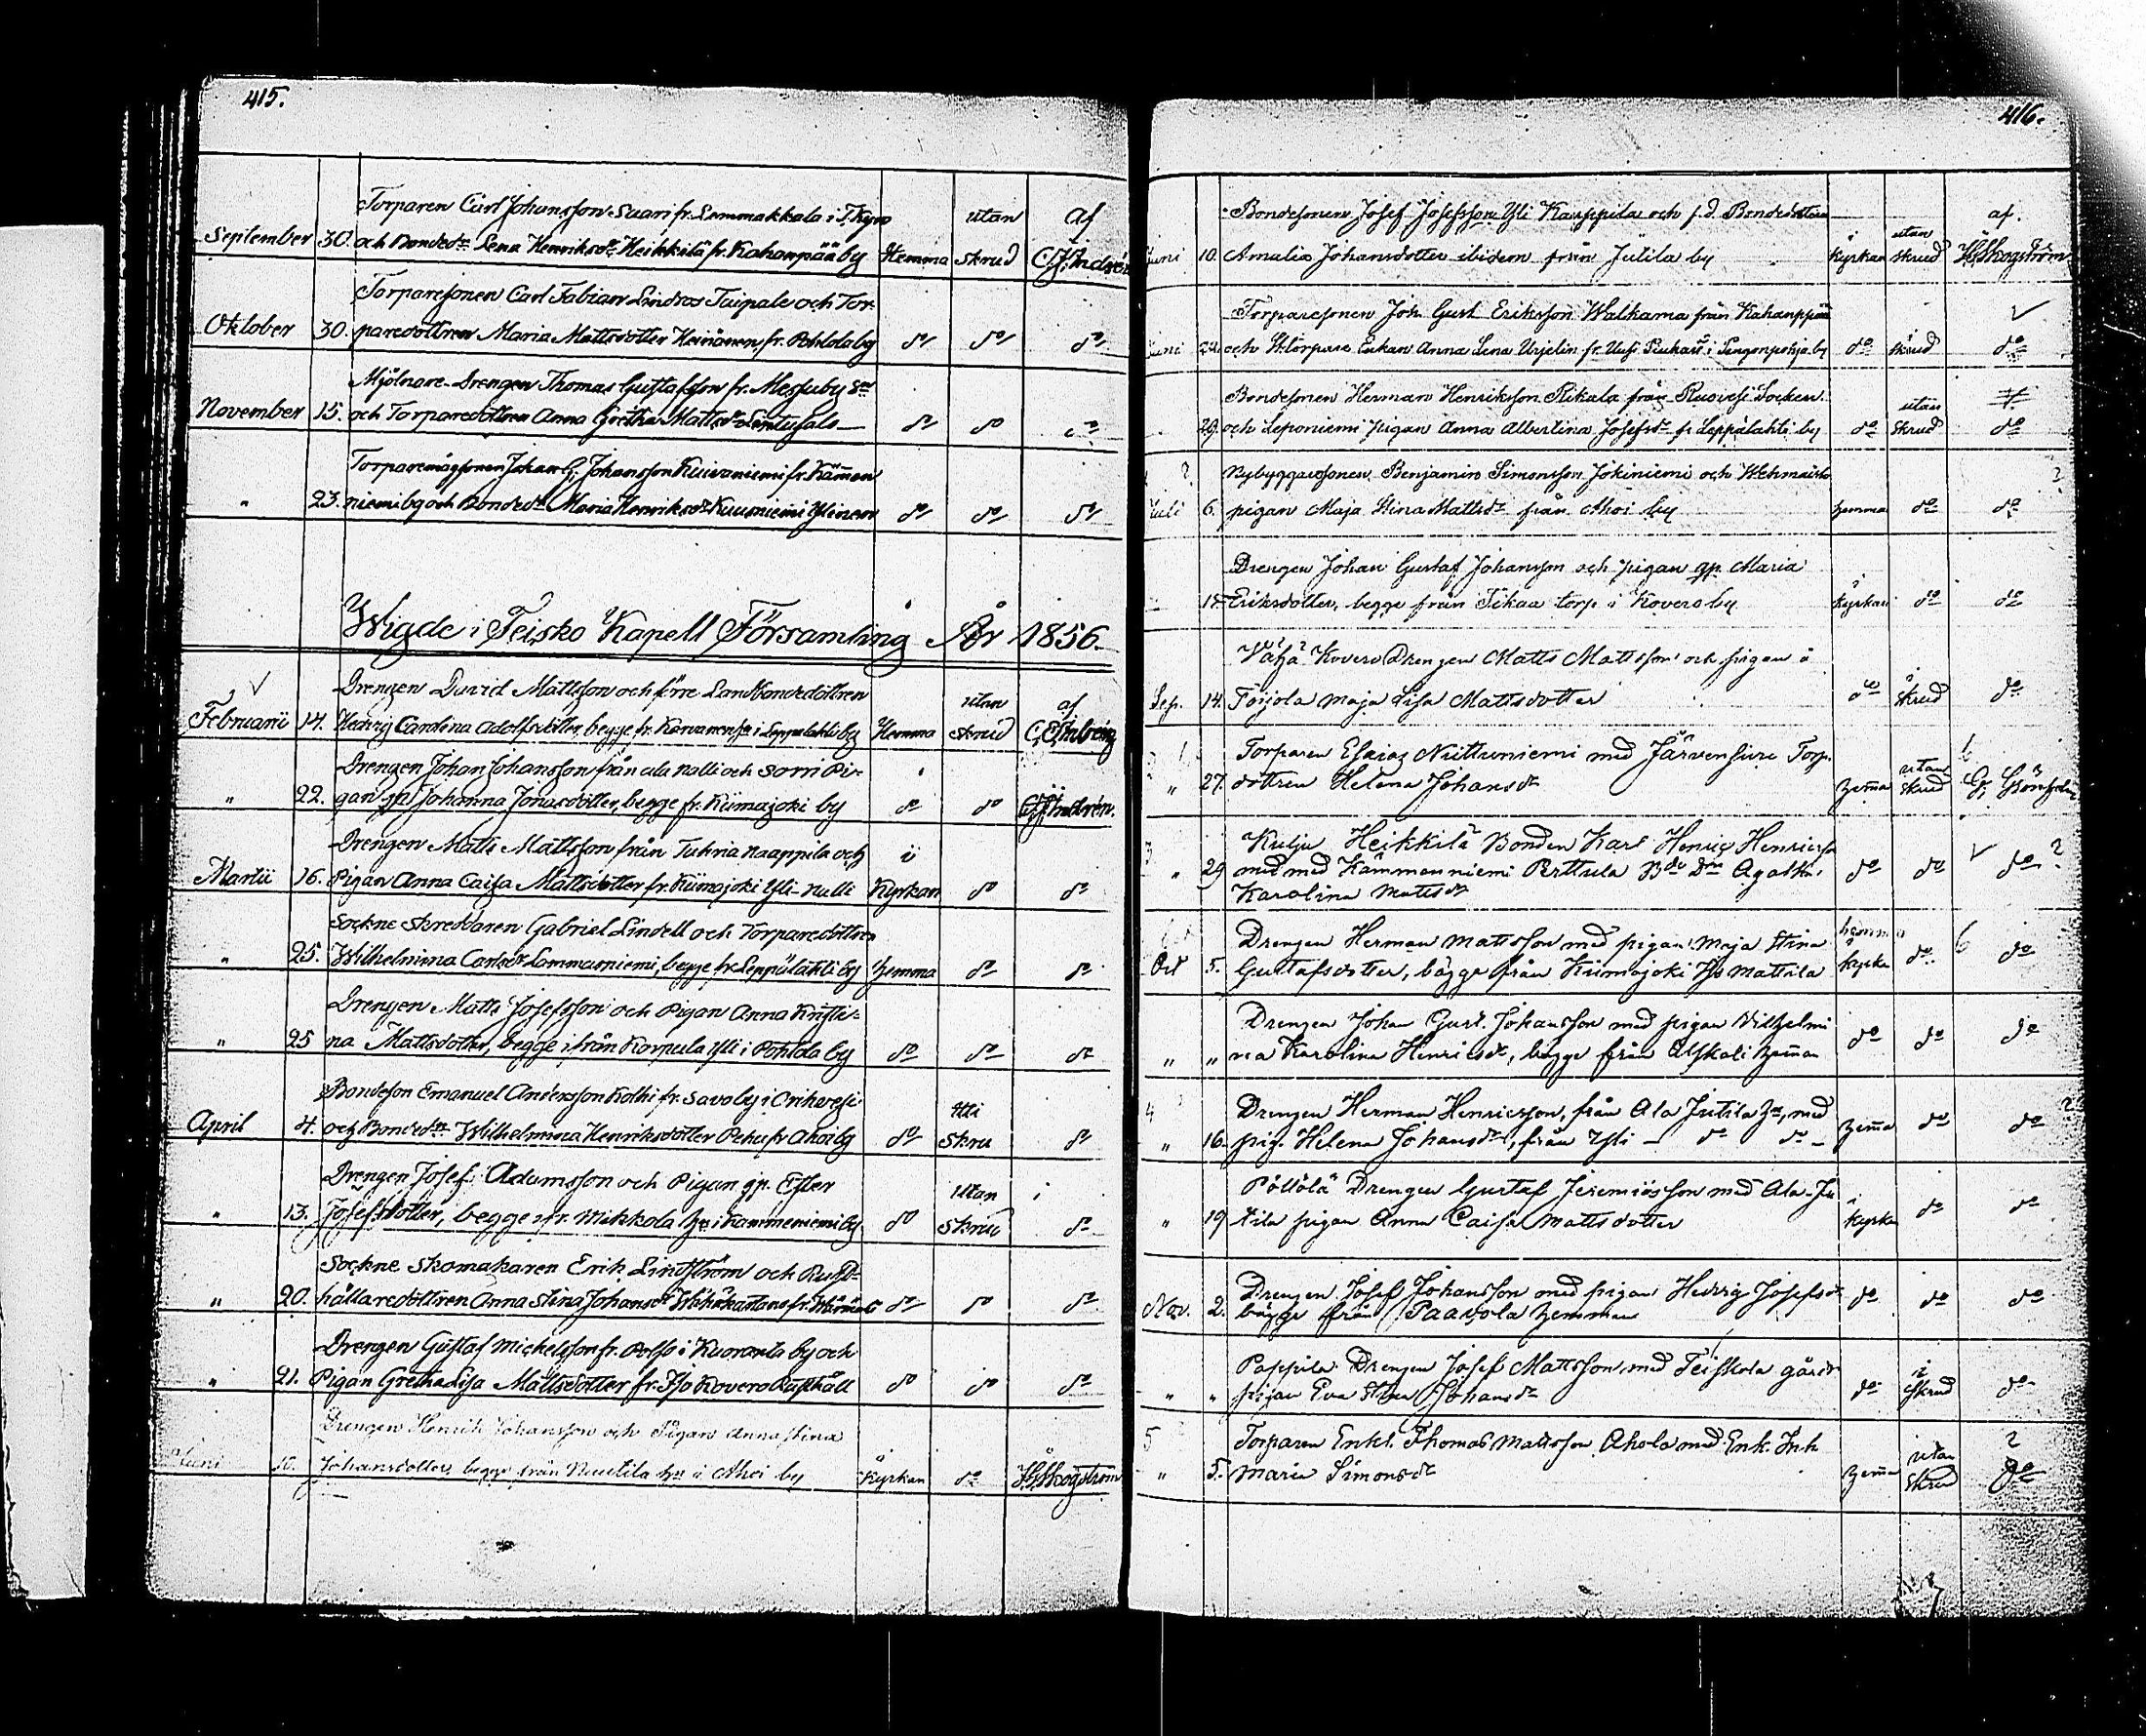 415.
Torparen Carl Johansson Saari fr. Lammakkala i T. Kyro utan af
September 30. och Bondedr. Lena Henriksdr Heikkilä fr. Kahanpää by Hemma skrud C. J. Andrén
Torparesonen Carl Fabian Lindros Taipale och Tor-
Oktober 30. paredottren Maria Mattsdotter Heinänen fr. Pohtola by do do do
Mjölnare-Drengen Thomas Gustafsson fr. Messuby Sn
November 15. och Torparedottren Anna Gretha Mattsdr do do do
Torparemågsonen Johan G. Johansson Kuivaniemi fr. Kämmen
" 23. niemi by och Bondedr Maria Henriksdr Kuusniemi Ylinen do do do
Wigde i Teisko Kapell Församling År 1856.
Drengen David Mattsson och förre Landbondedottren utan af
Februarii 14. Hedvig Carolina Adolfsdotter, begge fr. i Leppälahti by Hemma skrud
Drengen Johan Johansson från ala Nalli och Sorri Pi-
" 22. gan gp. Johanna Jonasdotter, begge fr. Kiimajoki by do do C. J. Andrén.
Drengen Matts Mattsson från Tuhria Naappila och i
Martii 16. Pigan Anna Caisa Mattsdotter fr. Kiimajoki Yli-Nalli Kyrkan do do
Sockne Skreddaren Gabriel Lindell och Torparedottren
" 25. Wilhelmina Carlsdr Lammasniemi, begge fr. Leppälahti by hemma do do
Drengen Matts Josefsson och Pigan Anna Kristi-
" 25 na Mattsdotter, begge ifrån Korpula Yli i Pohtola by do do do
Bondeson Emanuel Andersson Kolhi fr. Savo by i Orihvesi Uti
April 4. och Bondedr. Wilhelmina Henriksdotter Pehu fr. Ahoi by do Skru do
Drengen Josef Adamsson och Pigan gp. Ester Utan
" 13. Josefsdotter, begge ifr. Mikkola hn i Kammeniemi by do Skrud do
Sockne Skomakaren Erik Lindström och Rust-
" 20. hållaredottren Anna Stina Johansdr do do do
Drengen Gustaf Michelsson fr. Polso i Kuoranta by och
" 21. Pigan Gretha Lisa Mattsdotter fr. Iso Kovero Rusthåll do do do
Drengen Henrik Johansson och Pigan Anna Stina
Juni 10. Johansdotter, begge från Nuutila hn i Ahoi by Kyrkan do Skogström
416.
Bondesonen Josef Josefsson Yli Kauppila och f.d. Bondedottren utan af.
Juni 10. Amalia Johansdotter ibidem från Jutila by Kyrkan skrud Skogström
Torparesonen Joh. Gust. Eriksson Walkama från Kahanpää
Juni 24. och St. torpare Enkan Anna Lena Urjelin fr. i by do skrud do
Bondesonen Herman Henriksson Rikala från Ruovesi Socken utan
29. och Leponiemi pigan Anna Albertina Josefsdr fr. Leppälahti by do skrud do
Nybyggaresonen Benjamin Simonsson Jokiniemi och
Juli 6. pigan Maja Stina Mattsdr från Ahoi by hemma do do
Drengen Johan Gustaf Johansson och pigan gp. Maria
Eriksdotter, begge från torp i Kovero by kyrkan do do
Vähä Kovero Drengen Matts Mattsson och pigan i
Sep. 14. Maja Lisa Mattsdotter do skrud do
Torparen Esaias Niittuniemi med Järvensivu Torp.
" 27. dottren Helena Johansdr hemma utan skrud G.
Kulju Heikkilä Bonden Karl Henric Henricss
" 29 med Kämmenniemi Perttula Bde Drn Agatha do do do
Karolina Mattsdr
Drengen Herman Mattsson med pigan Maja Stina
Oct 5. Gustafsdotter, bägge från Kiimajoki Iso Mattila kyrka do do
Drengen Johan Gust. Johansson med pigan Vilhelmi
" " na Karolina Henricsdr, bägge från Alskali hemman do do do
Drengen Herman Henricsson, från Ala Jutila hn, med
" 16. pig. Helena Johansdr, från Yli - do do - hemma do do
Pöllölä Drengen Gustaf Jeremiæsson med Ala-Ju i
" 19 tila pigan Anna Caisa Mattsdotter kyrka do do
Drengen Josef Johansson med pigan Hedvig Josefsdr do do do
Nov. 2. bägge från Paavola hemman
Pappila Drengen Josef Mattsson, med Teiskola gårds i
" " pigan Eva Stina Johansdr do skrud do
Torparen Enkl. Thomas Mattsson Ahola med Enk. Inh. utan
" 5. Maria Simonsdr hemma skrud do